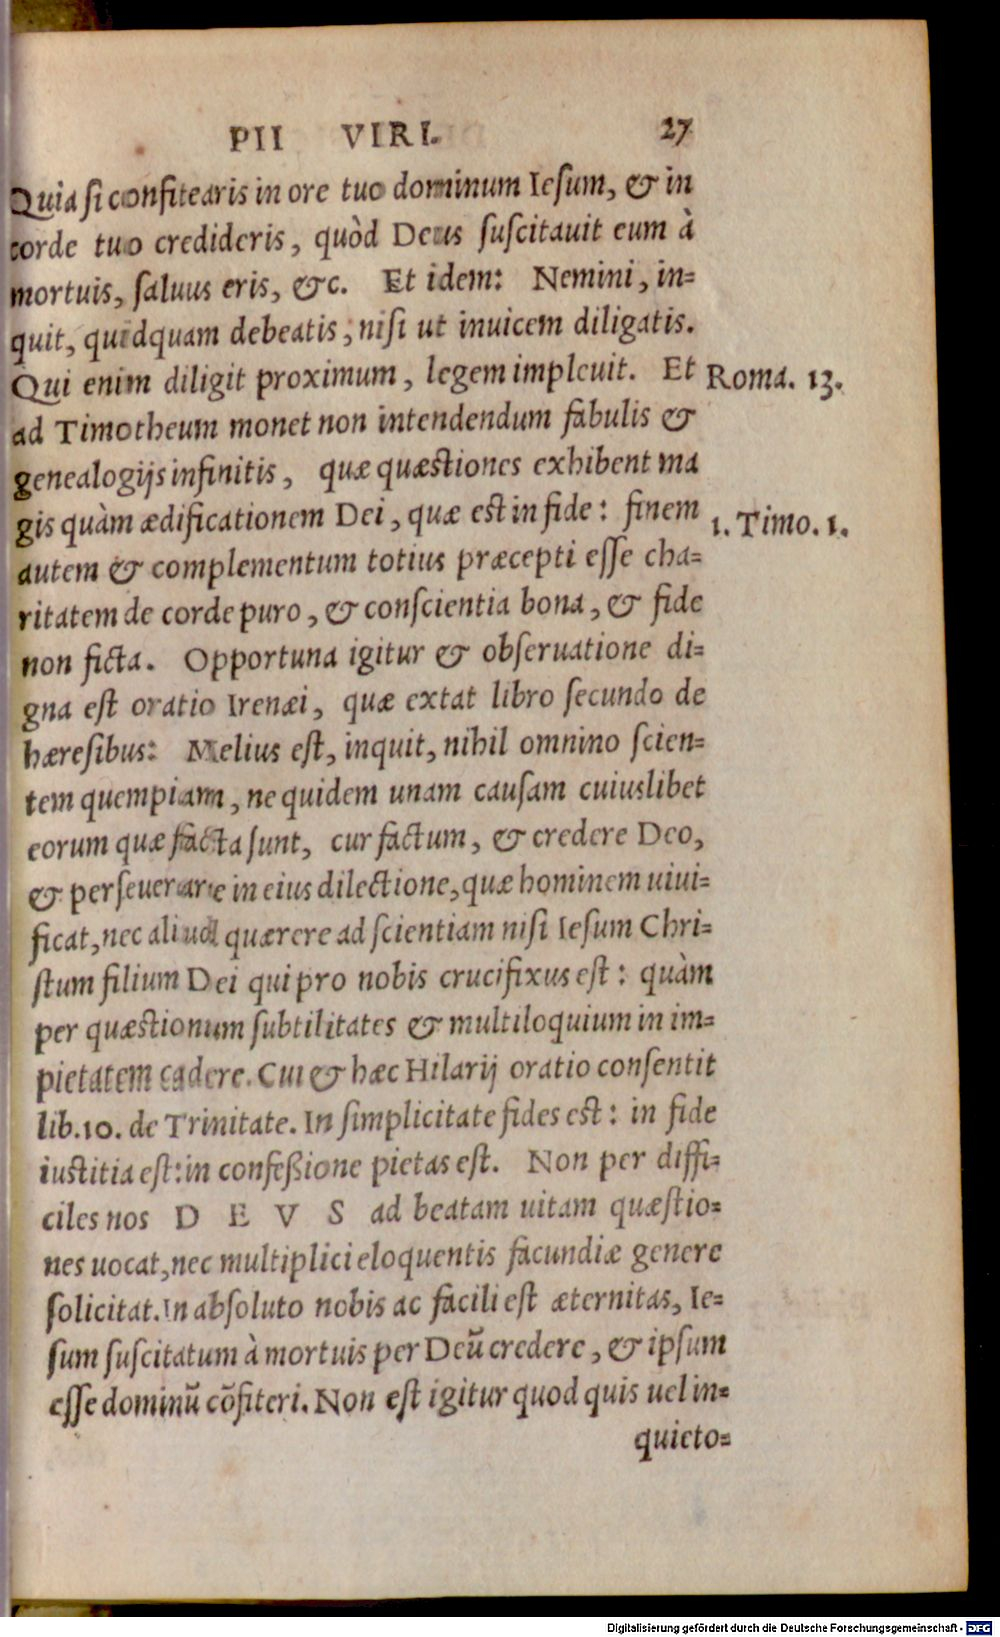 PII VIRI. 27
Quia si confitearis in ore tuo dominum Iesum, & in
corde tuo credideris, quòd Deus suscitauit eum à
mortuis, saluus eris, &c. Et idem: Nemini, in-
quit, quidquam debeatis, nisi ut inuicem diligatis.
Qui enim diligit proximum, legem impleuit. Et
Roma. 13.
ad Timotheum monet non intendendum fabulis &
genealogijs infinitis, quæ quæstiones exhibent ma
gis quàm ædificationem Dei, quæ est in fide: finem
1. Timo. 1.
autem & complementum totius præcepti esse cha-
ritatem de corde puro, & conscientia bona, & fide
non ficta. Opportuna igitur & obseruatione di-
gna est oratio Irenæi, quæ extat libro secundo de
hæresibus: Melius est, inquit, nihil omnino scien-
tem quempiam, ne quidem unam causam cuiuslibet
eorum quæ facta sunt, cur factum, & credere Deo,
& perseuerare in eius dilectione, quæ hominem uiui-
ficat, nec aliud quærere ad scientiam nisi Iesum Chri-
stum filium Dei qui pro nobis crucifixus est: quàm
per quæstionum subtilitates & multiloquium in im-
pietatem cadere. Cui & hæc Hilarij oratio consentit
lib. 10. de Trinitate. In simplicitate fides est: in fide
iustitia est: in confeßione pietas est. Non per diffi-
ciles nos D E V S ad beatam uitam quæstio-
nes uocat, nec multiplici eloquentis facundiæ genere
solicitat. In absoluto nobis ac facili est æternitas, Ie-
sum suscitatum à mortuis per Deũ credere, & ipsum
esse dominũ cõfiteri. Non est igitur quod quis uel in-
quieto-
Digitalisierung gefördert durch die Deutsche Forschungsgemeinschaft - DFG